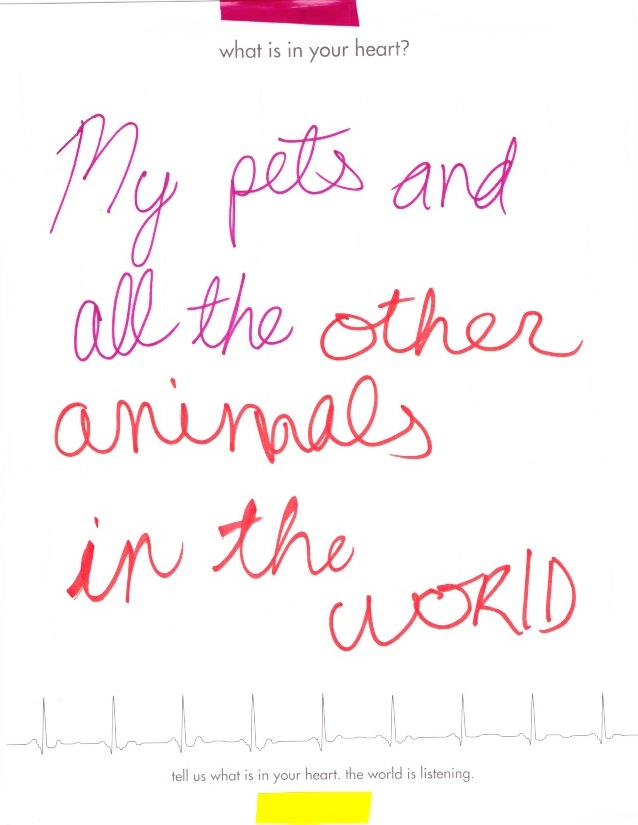 what is in your heart?
My pets and
all the other
animals
in the
WORLD
tell us what is in your heart. the world is listening.